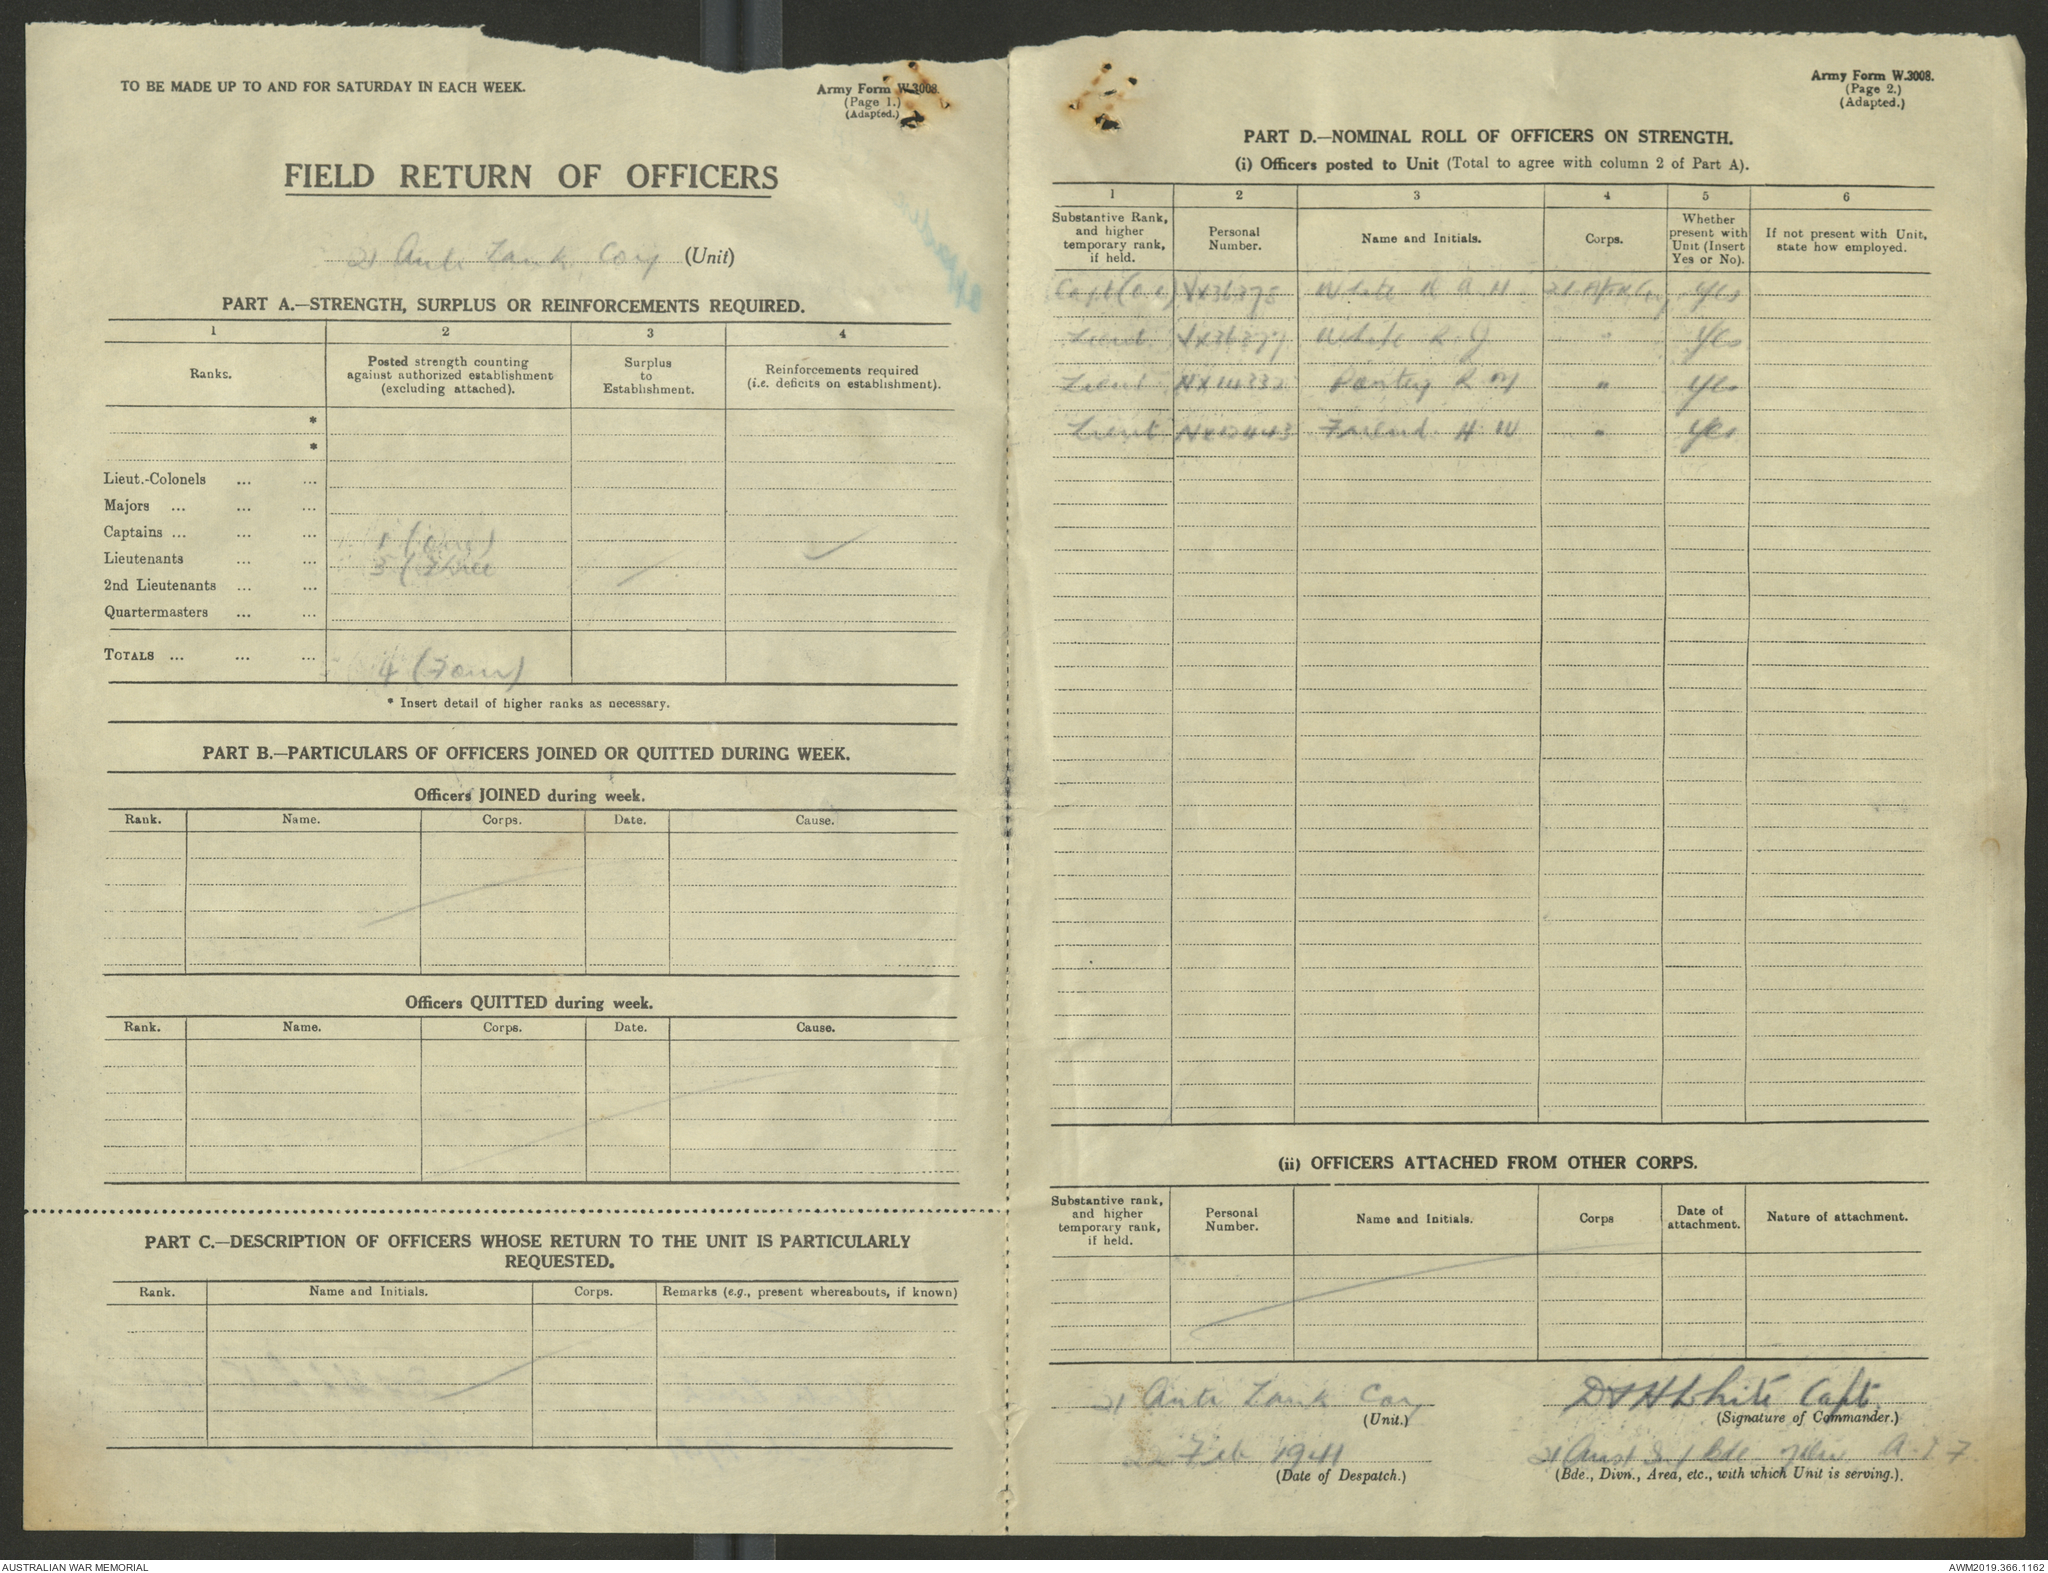 TO BE MADE UP TO AND FOR SATURDAY IN EACH WEEK.
Army Form W.3008.
(Page 1.)
(Adapted.)
FIELD RETURN OF OFFICERS
21 Anti Tank Coy (Unit)
PART A.—STRENGTH, SURPLUS OR REINFORCEMENTS REQUIRED.
1 2 3 4
Ranks. Posted strength counting against authorized establishment (excluding attached). Surplus to Establishment. Reinforcements required (i.e. deficits on establishment).
*
*
Lieut.-Colonels ... ...
Majors ... ... ...
Captains ... ... ... 1 (One)
Lieutenants ... ... 3 (Three
2nd Lieutenants ... ...
Quartermasters ... ...
TOTALS ... ... ... 4 (Four)
* Insert detail of higher ranks as necessary.
PART B.—PARTICULARS OF OFFICERS JOINED OR QUITTED DURING WEEK.
Officers JOINED during week.
Rank. Name. Corps. Date. Cause.
Officers QUITTED during week.
Rank. Name. Corps. Date. Cause.
PART C.—DESCRIPTION OF OFFICERS WHOSE RETURN TO THE UNIT IS PARTICULARLY
REQUESTED.
Rank. Name and Initials. Corps. Remarks (e.g., present whereabouts, if known)
Army Form W.3008.
(Page 2.)
(Adapted.)
PART D.—NOMINAL ROLL OF OFFICERS ON STRENGTH.
(i) Officers posted to Unit (Total to agree with column 2 of Part A).
1 2 3 4 5 6
Substantive Rank, and higher temporary rank, if held. Personal Number. Name and Initials. Corps. Whether present with Unit (Insert Yes or No). If not present with Unit, state how employed.
Capt White H Yes
Lieut. White R. J " Yes
Lieut NX14332 R M " Yes
Lieut NX12443 Friend H W " Yes
(ii) OFFICERS ATTACHED FROM OTHER CORPS.
Substantive rank, and higher temporary rank, if held. Personal Number. Name and Initials. Corps Date of attachment. Nature of attachment.
21 Anti Tank Coy
(Unit.)
Feb 1941
(Date of Despatch.)
White Capt.
(Signature of Commander.)
21 Aust Inf Bde A.I.F
(Bde., Divn., Area, etc., with which Unit is serving.).
AUSTRALIAN WAR MEMORIAL
AWM2019.366.1162